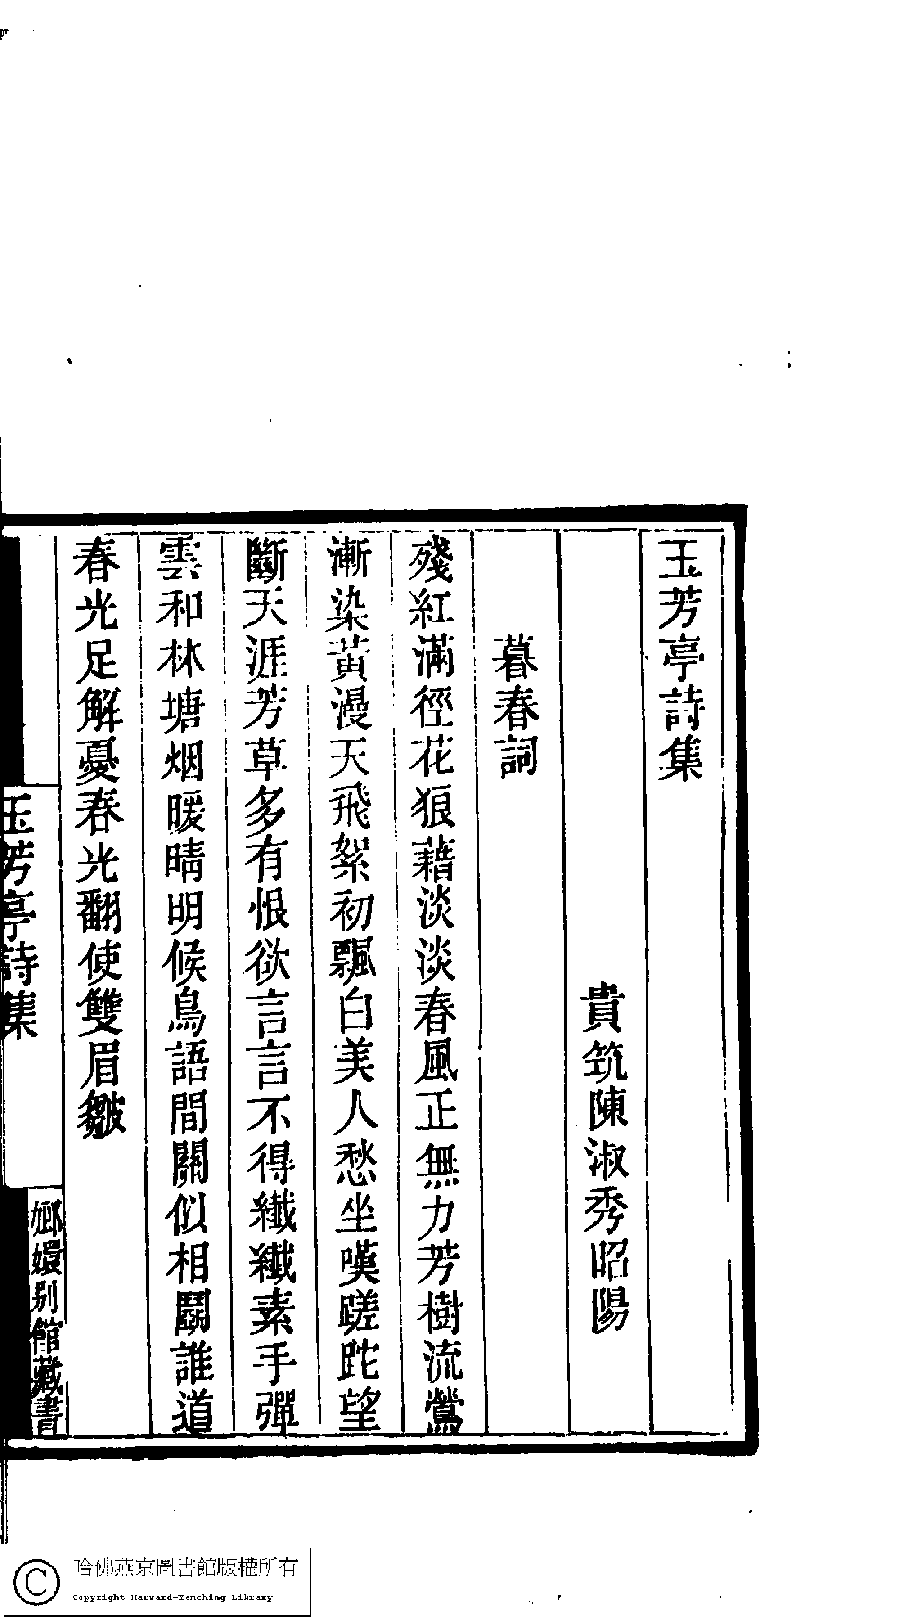 玉芳亭詩集
貴筑陳淑秀昭陽
暮春詞
殘紅滿徑花狼藉淡淡春風正無力芳樹流鶯
漸染黃漫天飛絮初飄白美人愁坐嘆蹉跎望
斷天涯芳草多有恨欲言言不得纖纖素手彈
雲和林塘烟暖晴明候鳥語間關似相鬬誰道
春光足解憂春光翻使雙眉皺
玉芳亭詩集
嫏嬛別館藏書
哈佛燕京圖書館版權所有
Copyright Harvard-Yenching Library